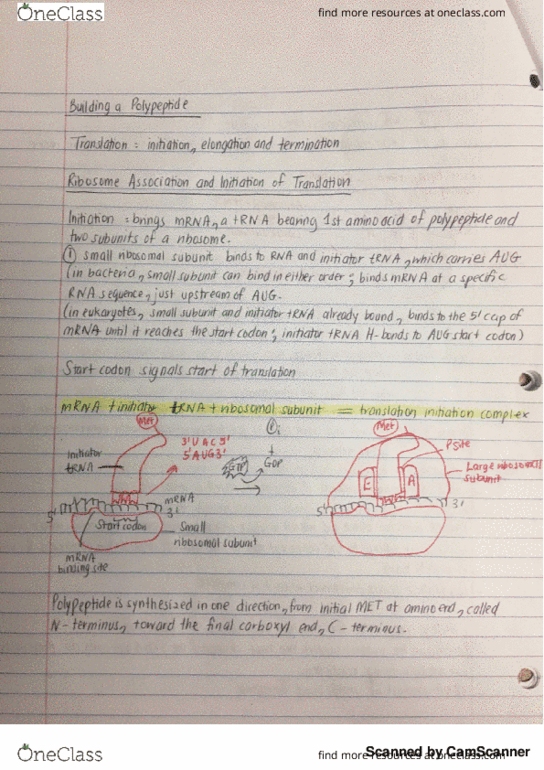 OneClass
find more resources at oneclass.com
Building a Polypeptide
Translation : initiation, elongation and termination
Ribosome Association and Initiation of Translation
Initiation : brings mRNA, a tRNA bearing 1st amino acid of polypeptide and
two subunits of a ribosome.
① small ribosomal subunit binds to RNA and initiator tRNA, which carries AUG
(in bacteria, small subunit can bind in either order ; binds mRNA at a specific
RNA sequence, just upstream of AUG.
(in eukaryotes, small subunit and initiator tRNA already bound, binds to the 5' cap of
mRNA until it reaches the start codon ; initiator tRNA H-bonds to AUG start codon)
Start codon signals start of translation
mRNA + initiator tRNA + ribosomal subunit = translation initiation complex
Met
3' U A C 5'
5' A U G 3'
initiator
tRNA
mRNA
5'
3'
Start codon
Small
ribosomal subunit
mRNA
binding site
GTP
GDP
Met
P site
Large ribosomal
subunit
E
A
5'
3'
Polypeptide is synthesized in one direction, from initial MET at amino end, called
N-terminus, toward the final carboxyl end, C-terminus.
OneClass
find more resources at oneclass.com
Scanned by CamScanner